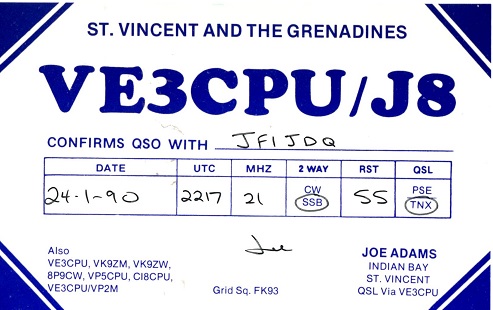 ST. VINCENT AND THE GRENADINES
VE3CPU/J8
CONFIRMS QSO WITH JF1JDQ
DATE UTC MHZ 2 WAY RST QSL
24-1-90 2217 21 CW SSB 55 PSE TNX
Joe
Also
VE3CPU, VK9ZM, VK9ZW,
8P9CW, VP5CPU, CI8CPU,
VE3CPU/VP2M
Grid Sq. FK93
JOE ADAMS
INDIAN BAY
ST. VINCENT
QSL Via VE3CPU